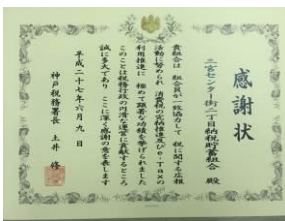 感謝状
三宮センター街二丁目納税貯蓄組合 殿
貴組合は 組合員が一致協力して 税に関する広報
活動に努められ 消費税の完納推進及びe-Taxの
利用推進に 極めて顕著な功績を挙げられました
このことは税務行政の円滑な運営に貢献するところ
誠に多大であり ここに深く感謝の意を表します
平成二十七年六月九日
神戸税務署長 土井 修